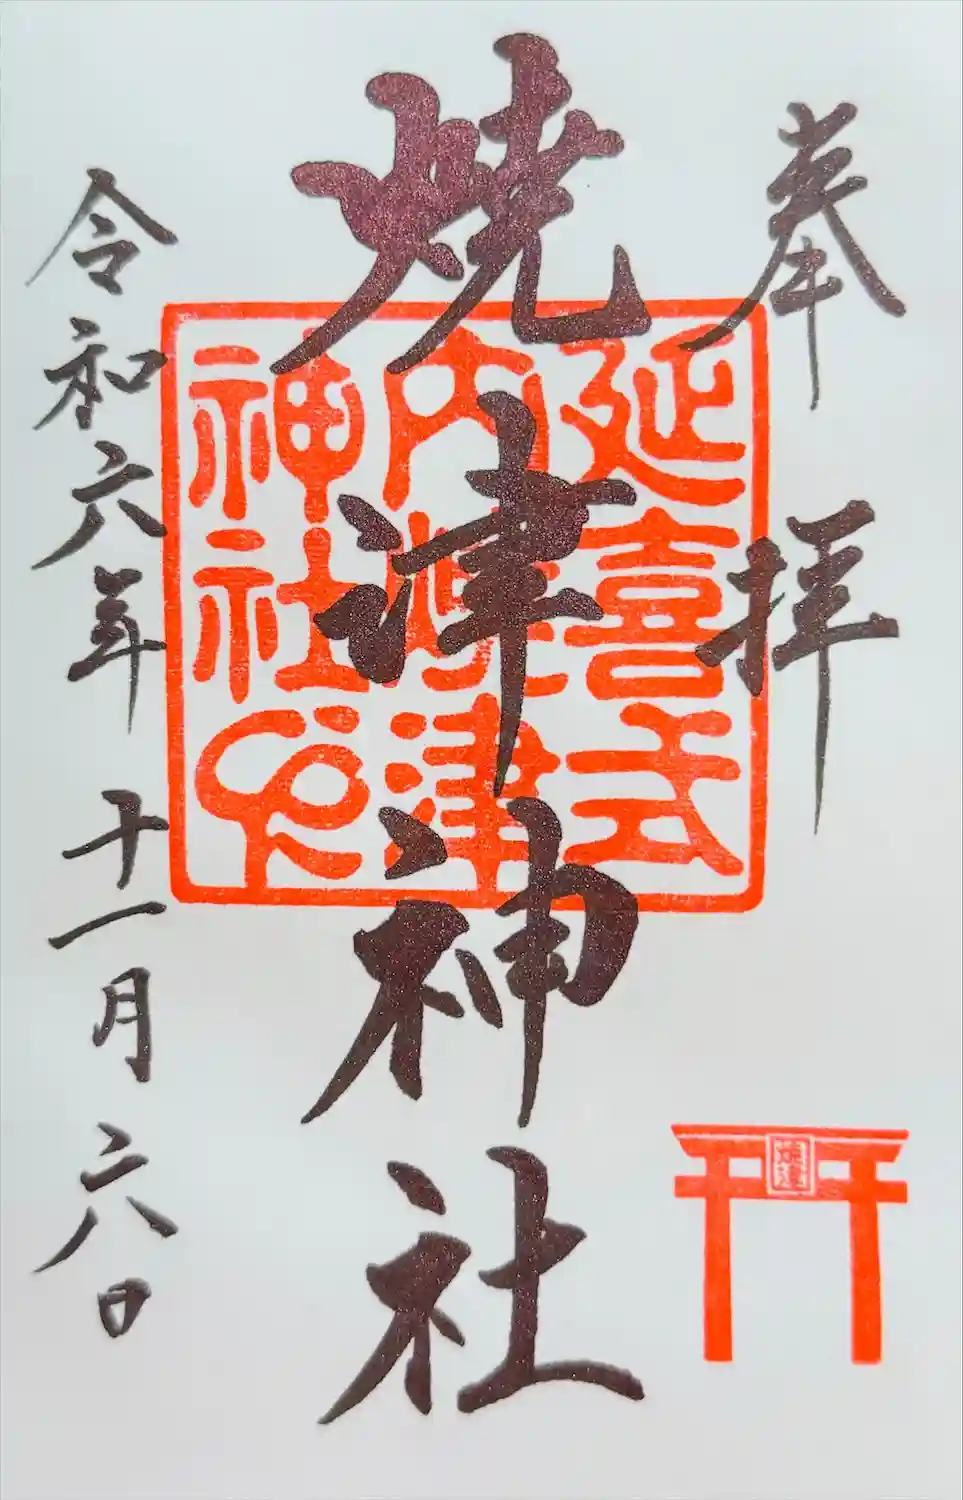 奉拝
延喜式
内焼津
神社印
焼津神社
焼津
令和六年十一月六日